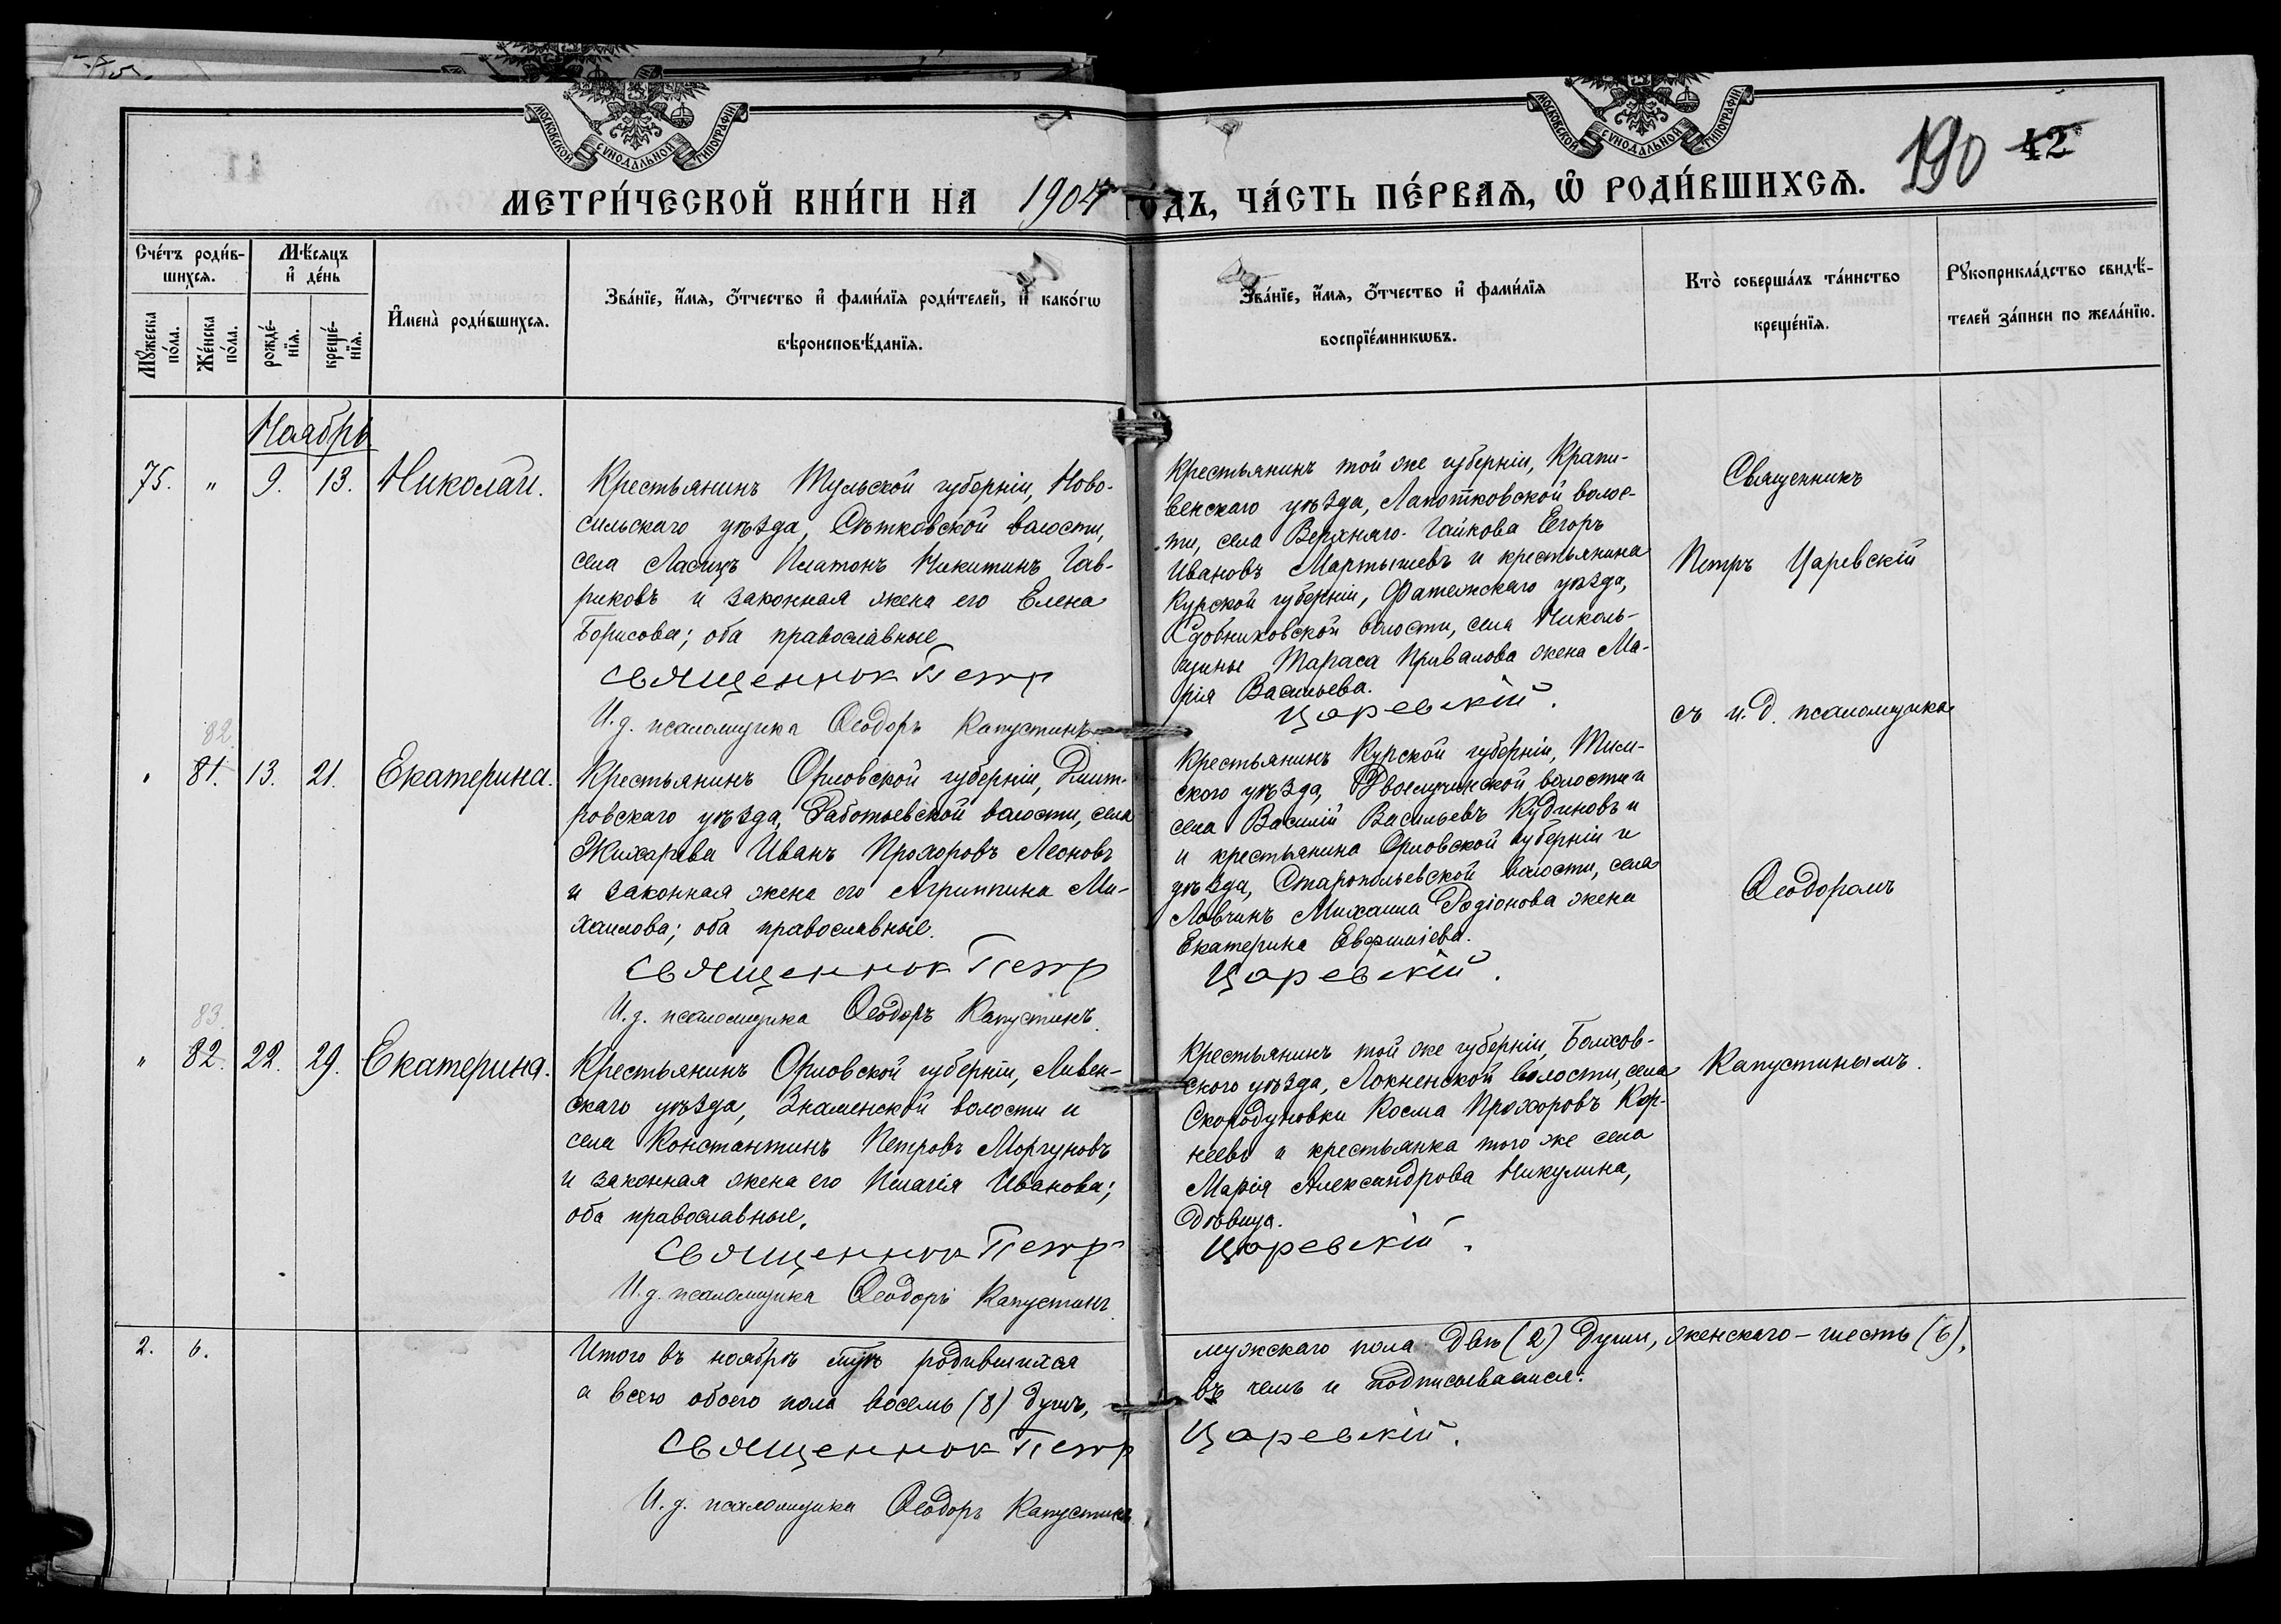 МОСКОВСКОЙ СУНОДАЛЬНОЙ ТИПОГРАФІИ
МОСКОВСКОЙ СУНОДАЛЬНОЙ ТИПОГРАФІИ
190 42
МЕТРИ́ЧЕСКОЙ КНИ́ГИ НА 1904 го́дъ, ЧА́СТЬ ПЕ́РВАЯ, Ѡ РОДИ́ВШИХСЯ.
Сче́тъ роди́в-
шихся.
Мѣ́сяцъ
и҆ де́нь
Мꙋ́жеска по́ла.
Же́нска по́ла.
рожде́-
нїя.
креще́-
нїя.
И҆мена̀ роди́вшихся.
Зва́нїе, и҆́мя, ѻ҆́тчество и҆ фами́лїя роди́телей, и҆ како́гѡ
вѣроисповѣ́данїя.
Зва́нїе, и҆́мя, ѻ҆́тчество и҆ фами́лїя
воспрїе́мникѡвъ.
Кто̀ соверша́лъ та́инство
креще́нїя.
Рꙋкоприкла́дство свидѣ́-
телей за́писи по жела́нїю.
Ноябрь
75. " 9. 13. Николай.
Крестьянинъ Тульской губерніи, Ново-
сильскаго уѣзда, Сѣтковской волости,
села Ласицъ Платонъ Никитинъ Гав-
риковъ и законная жена его Елена
Борисова; оба православные
Священник Петр
И. д. псаломщика Ѳеодоръ Капустинъ
Крестьянинъ той же губерніи, Крапи-
венскаго уѣзда, Лапотковской волос-
ти, села Верхняго Гайкова Егоръ
Ивановъ Мартышевъ и крестьянина
Курской губерніи, Фатежскаго уѣзда,
волости, села Николь-
щины Тараса Привалова жена Ма-
рія Васильева.
Царевскій.
Священникъ
Петръ Царевскій
съ и. д. псаломщика
Ѳеодоромъ
Капустинымъ.
82.
" 81. 13. 21. Екатерина.
Крестьянинъ Орловской губерніи, Дмит-
ровскаго уѣзда, Работьевской волости, села
Жихарева Иванъ Прохоровъ Леоновъ
и законная жена его Агриппина Ми-
хаилова; оба православные.
Священник Петр
И. д. псаломщика Ѳеодоръ Капустинъ.
Крестьянинъ Курской губерніи, Тим-
ского уѣзда, волости и
села Василій Васильевъ Кудиновъ и
и крестьянина Орловской губерніи и
уѣзда, волости, села
Ловчинъ Михаила Родіонова жена
Екатерина Евѳиміева.
Царевскій.
83.
" 82. 22. 29. Екатерина.
Крестьянинъ Орловской губерніи, Ливен-
скаго уѣзда, Знаменской волости и
села Константинъ Петровъ Моргуновъ
и законная жена его Пелагія Иванова;
оба православные.
Священник Петр
И. д. псаломщика Ѳеодоръ Капустинъ
Крестьянинъ той же губерніи, Болхов-
ского уѣзда, Локненской волости, села
Скородумовки Косма Прохоровъ Кор-
неевъ и крестьянка того же села
Марія Александрова Никулина,
дѣвица.
Царевскій.
2. 6.
Итого въ ноябрѣ родившихся
а всего обоего пола восемь (8) душъ,
Священник Петр
И. д. псаломщика Ѳеодоръ Капустинъ
мужскаго пола двѣ (2) души, женскаго – шесть (6),
въ чемъ и подписываемся.
Царевскій.